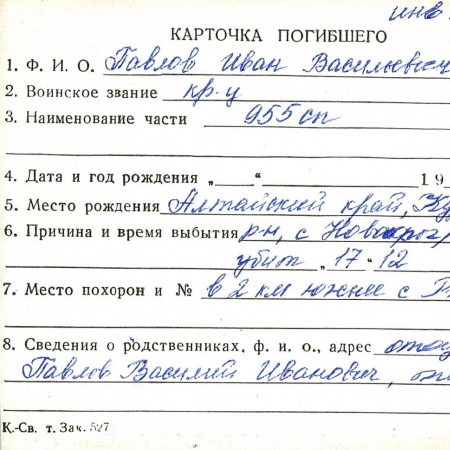 инв.
КАРТОЧКА ПОГИБШЕГО
1. Ф. И. О. Павлов Иван Васильевич
2. Воинское звание кр-ц
3. Наименование части 955 сп
4. Дата и год рождения „ “ 19
5. Место рождения Алтайский край,
6. Причина и время выбытия р-н, с
убит „17“ 12
7. Место похорон и № в 2 км южнее с
8. Сведения о родственниках, ф. и. о., адрес отец
Павлов Василий Иванович,
К.-Св. т. Зак. 527